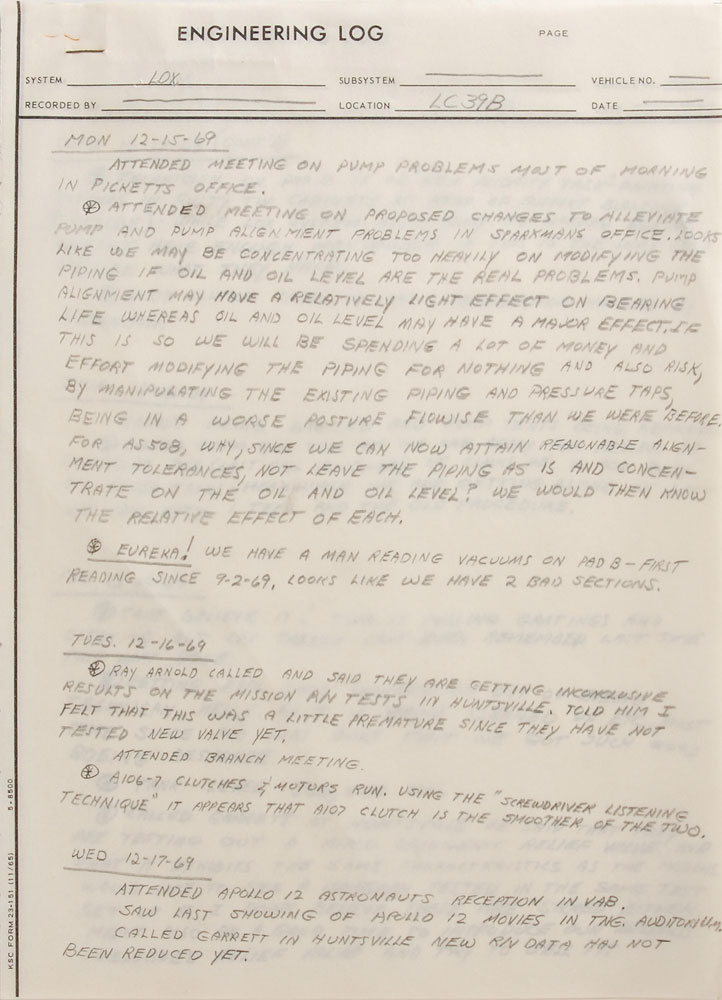 ENGINEERING LOG
PAGE
SYSTEM LOX SUBSYSTEM VEHICLE NO.
RECORDED BY LOCATION LC39B DATE
MON 12-15-69
ATTENDED MEETING ON PUMP PROBLEMS MOST OF MORNING
IN PICKETTS OFFICE.
ATTENDED MEETING ON PROPOSED CHANGES TO ALLEVIATE
PUMP AND PUMP ALIGNMENT PROBLEMS IN SPARKMANS OFFICE. LOOKS
LIKE WE MAY BE CONCENTRATING TOO HEAVILY ON MODIFYING THE
PIPING IF OIL AND OIL LEVEL ARE THE REAL PROBLEMS. PUMP
ALIGNMENT MAY HAVE A RELATIVELY LIGHT EFFECT ON BEARING
LIFE WHEREAS OIL AND OIL LEVEL MAY HAVE A MAJOR EFFECT. IF
THIS IS SO WE WILL BE SPENDING A LOT OF MONEY AND
EFFORT MODIFYING THE PIPING FOR NOTHING AND ALSO RISK,
BY MANIPULATING THE EXISTING PIPING AND PRESSURE TAPS,
BEING IN A WORSE POSTURE FLOWISE THAN WE WERE BEFORE.
FOR AS508, WHY, SINCE WE CAN NOW ATTAIN REASONABLE ALIGN-
MENT TOLERANCES, NOT LEAVE THE PIPING AS IS AND CONCEN-
TRATE ON THE OIL AND OIL LEVEL? WE WOULD THEN KNOW
THE RELATIVE EFFECT OF EACH.
EUREKA! WE HAVE A MAN READING VACUUMS ON PAD B - FIRST
READING SINCE 9-2-69, LOOKS LIKE WE HAVE 2 BAD SECTIONS.
TUES. 12-16-69
RAY ARNOLD CALLED AND SAID THEY ARE GETTING INCONCLUSIVE
RESULTS ON THE MISSION R/V TESTS IN HUNTSVILLE. TOLD HIM I
FELT THAT THIS WAS A LITTLE PREMATURE SINCE THEY HAVE NOT
TESTED NEW VALVE YET.
ATTENDED BRANCH MEETING.
A106-7 CLUTCHES & MOTORS RUN. USING THE "SCREWDRIVER LISTENING
TECHNIQUE" IT APPEARS THAT A107 CLUTCH IS THE SMOOTHER OF THE TWO.
WED 12-17-69
ATTENDED APOLLO 12 ASTRONAUTS RECEPTION IN VAB.
SAW LAST SHOWING OF APOLLO 12 MOVIES IN TNG. AUDITORIUM.
CALLED GARRETT IN HUNTSVILLE NEW R/V DATA HAS NOT
BEEN REDUCED YET.
KSC FORM 23-151 (11/65) 5-8500